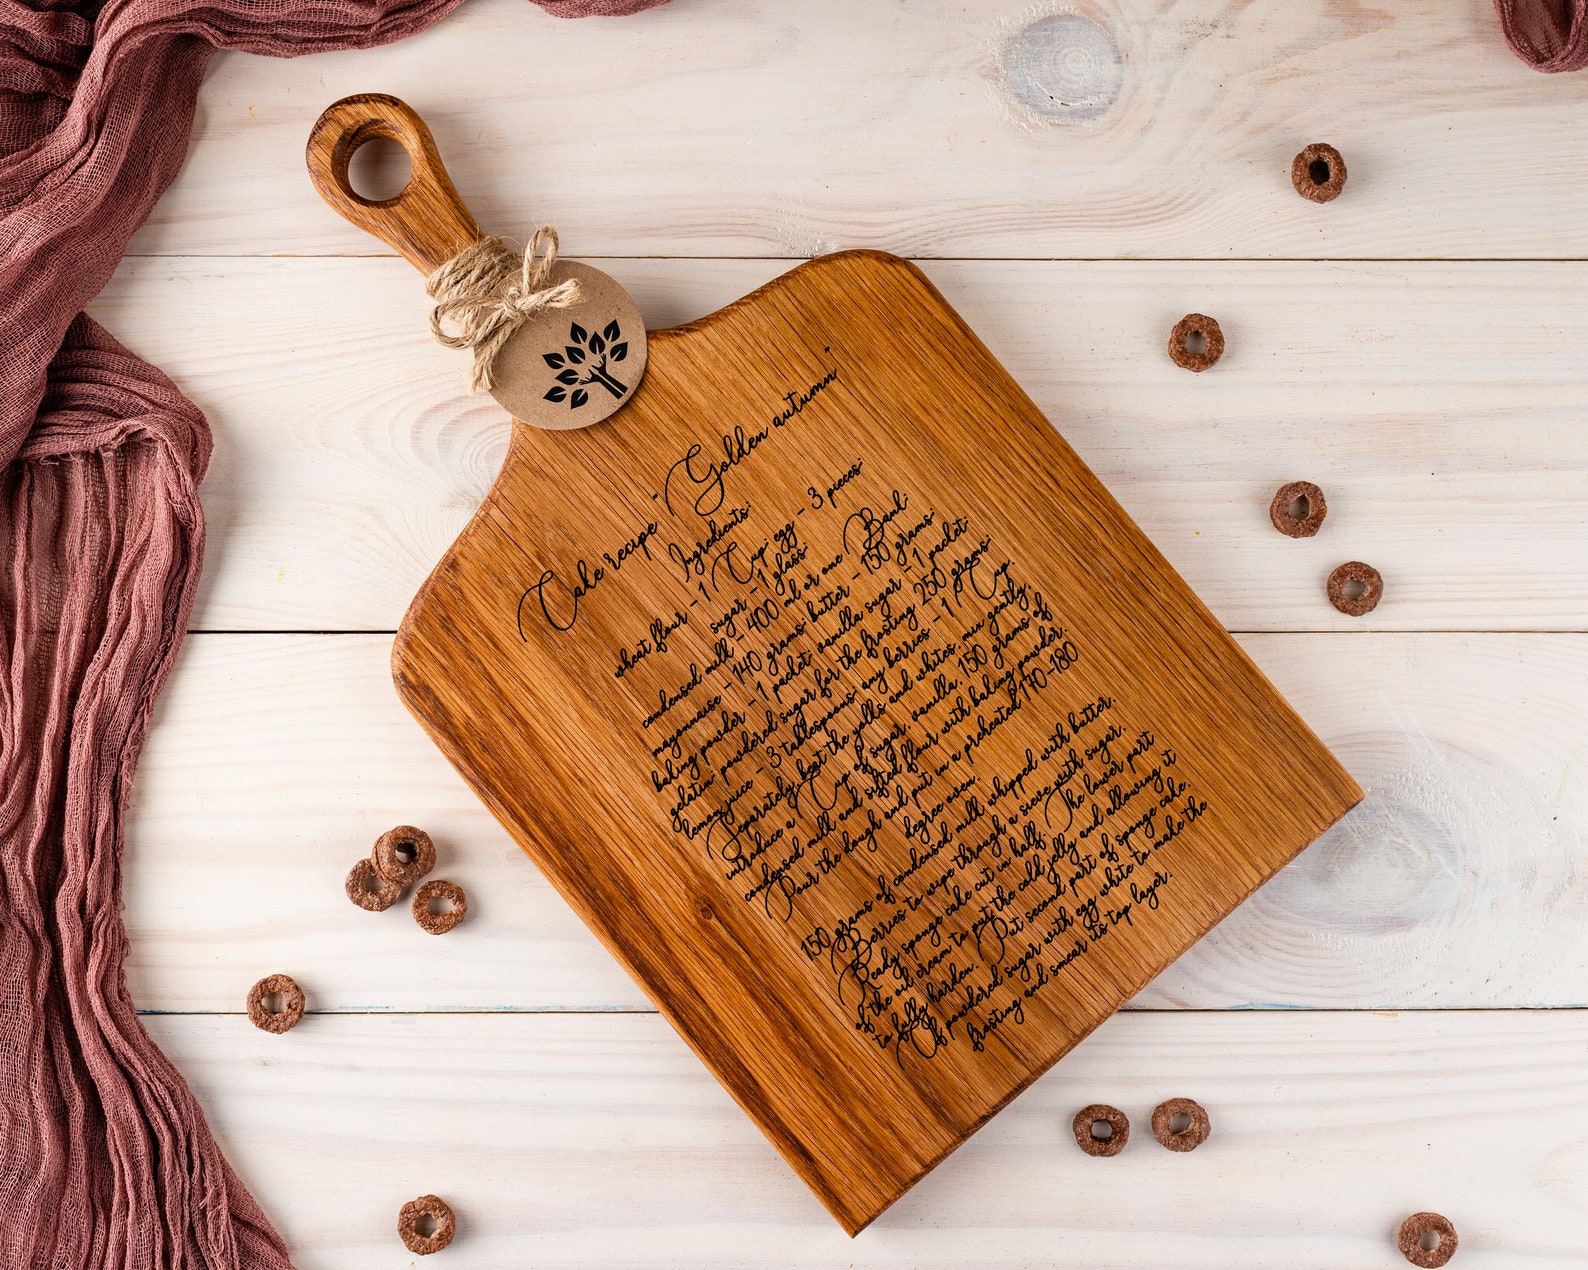 Cake recipe "Golden autumn"
Ingredients:
wheat flour - 1 Cup; egg - 3 pieces;
sugar - 1 glass;
condensed milk - 400 ml or one Bank;
mayonnaise - 140 grams; butter - 150 grams;
baking powder - 1 packet; vanilla sugar - 1 packet;
gelatin; powdered sugar for the frosting 250 grams;
lemon juice - 3 tablespoons; any berries - 1 Cup.
Separately beat the yolks and whites, mix gently,
introduce a Cup of sugar, vanilla, 150 grams of
condensed milk and sifted flour with baking powder.
Pour the dough and put in a preheated 170-180
degree oven.
150 grams of condensed milk whipped with butter.
Berries to wipe through a sieve with sugar.
Ready sponge cake cut in half. The lower part
of the oil cream to put the cold jelly and allowing it
to fully harden. Put second part of sponge cake.
Of powdered sugar with egg white to make the
frosting and smear its top layer.